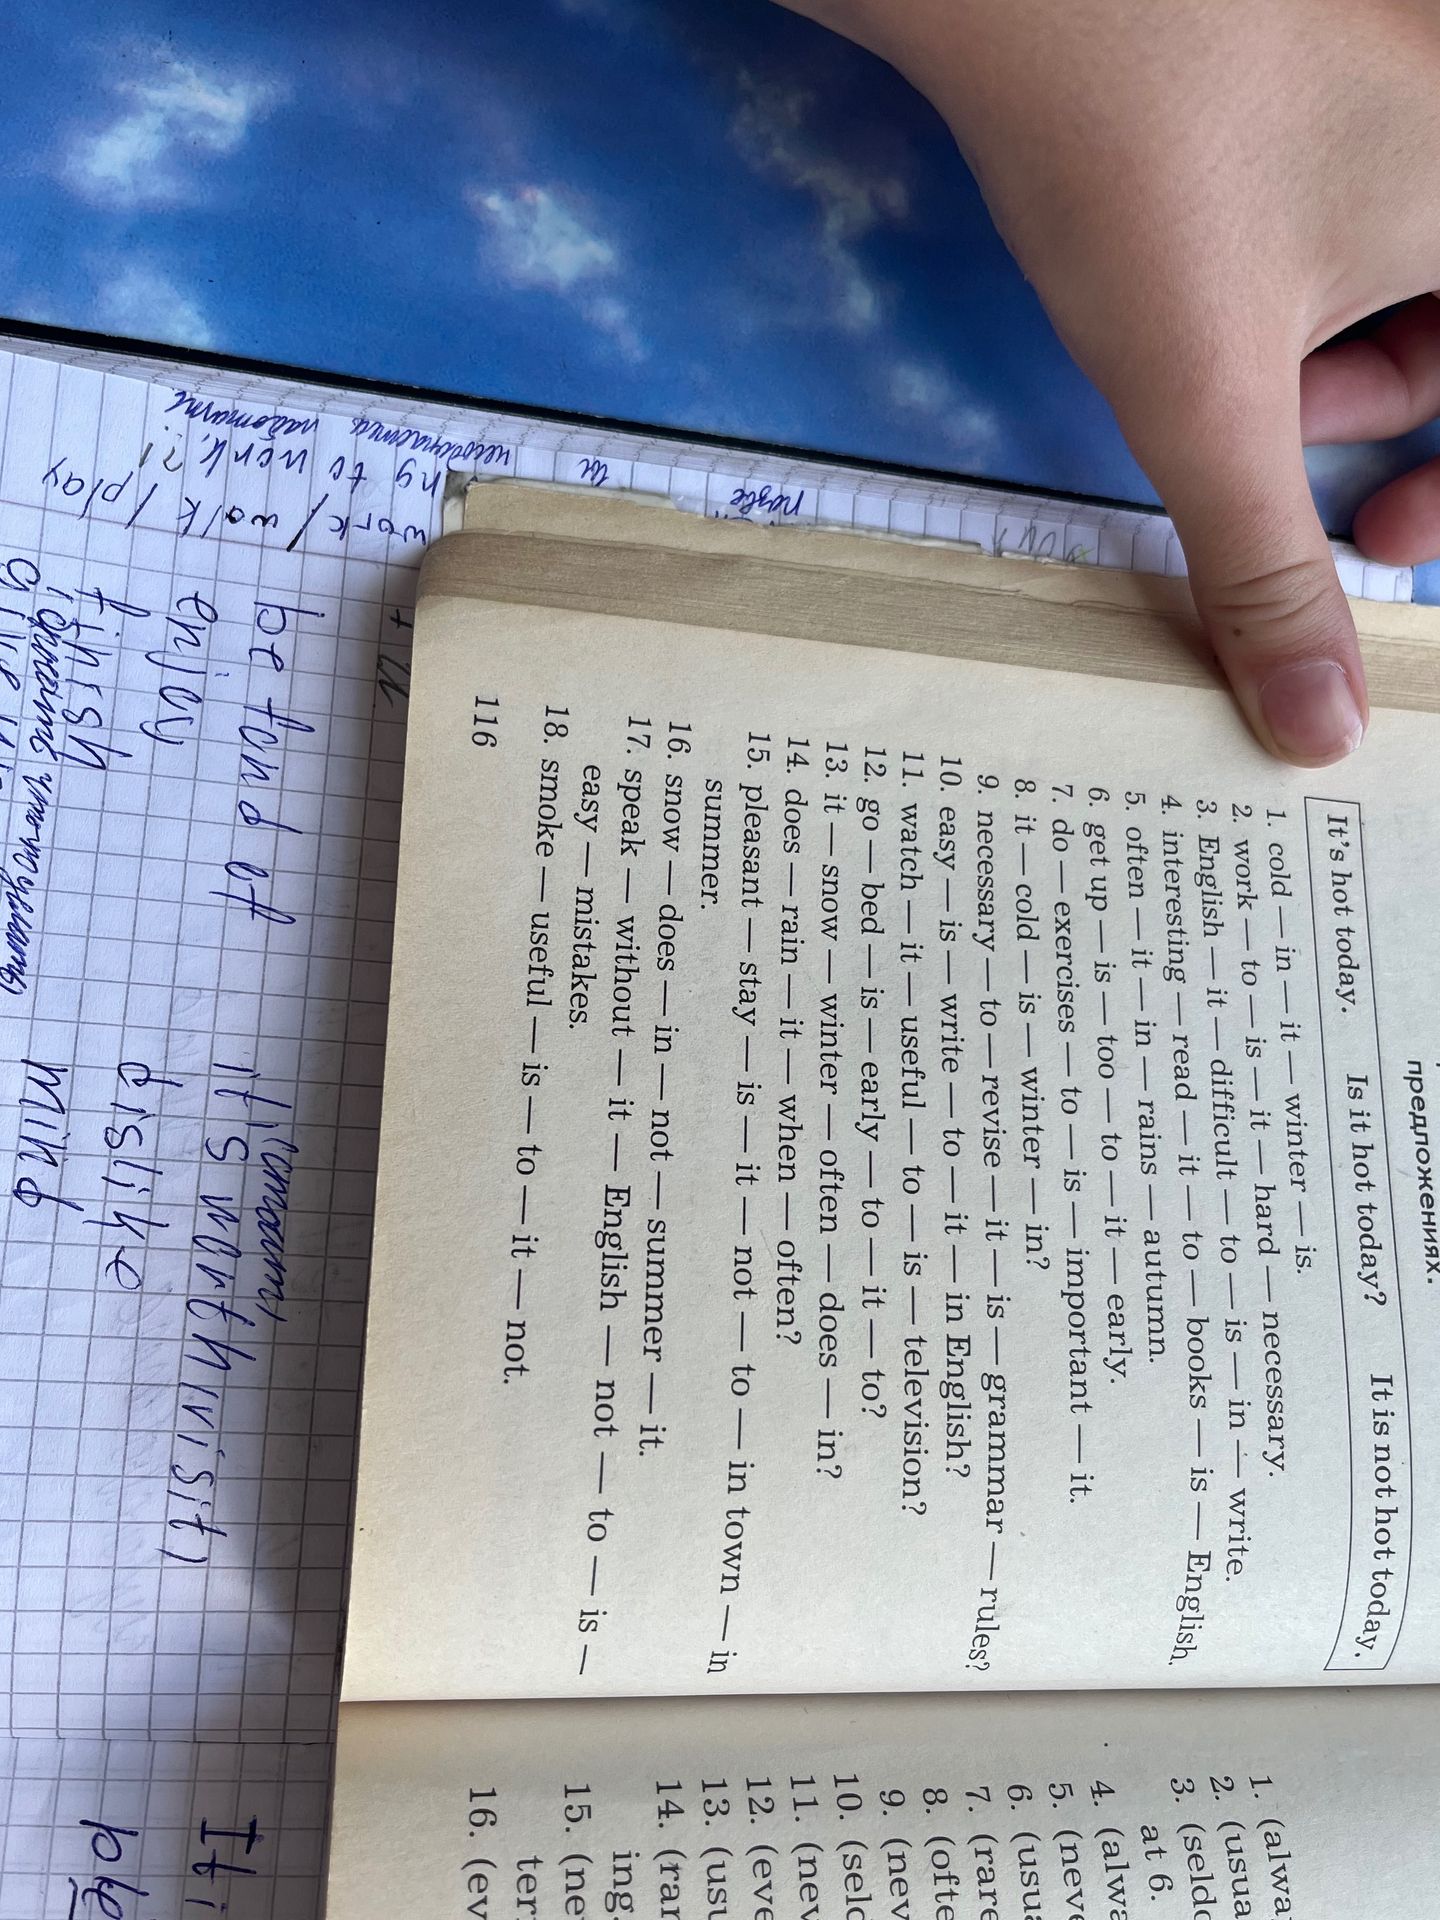 предложениях.
It's hot today. Is it hot today? It is not hot today.
1. cold — in — it — winter — is.
2. work — to — is — it — hard — necessary.
3. English — it — difficult — to — is — in — write.
4. interesting — read — it — to — books — is — English.
5. often — it — in — rains — autumn.
6. get up — is — too — to — it — early.
7. do — exercises — to — is — important — it.
8. it — cold — is — winter — in?
9. necessary — to — revise — it — is — grammar — rules?
10. easy — is — write — to — it — in English?
11. watch — it — useful — to — is — television?
12. go — bed — is — early — to — it — to?
13. it — snow — winter — often — does — in?
14. does — rain — it — when — often?
15. pleasant — stay — is — it — not — to — in town — in
summer.
16. snow — does — in — not — summer — it.
17. speak — without — it — English — not — to — is —
easy — mistakes.
18. smoke — useful — is — to — it — not.
116
1. (alwa
2. (usua
3. (seldo
at 6.
4. (alwa
5. (neve
6. (usua
7. (rare
8. (ofte
9. (nev
10. (seld
11. (nev
12. (eve
13. (usu
14. (rar
ing.
15. (ne
ter
16. (ev
work / walk / play
ng to work
be fond of
enjoy
finish
it's worth (visit)
dislike
mind
It i